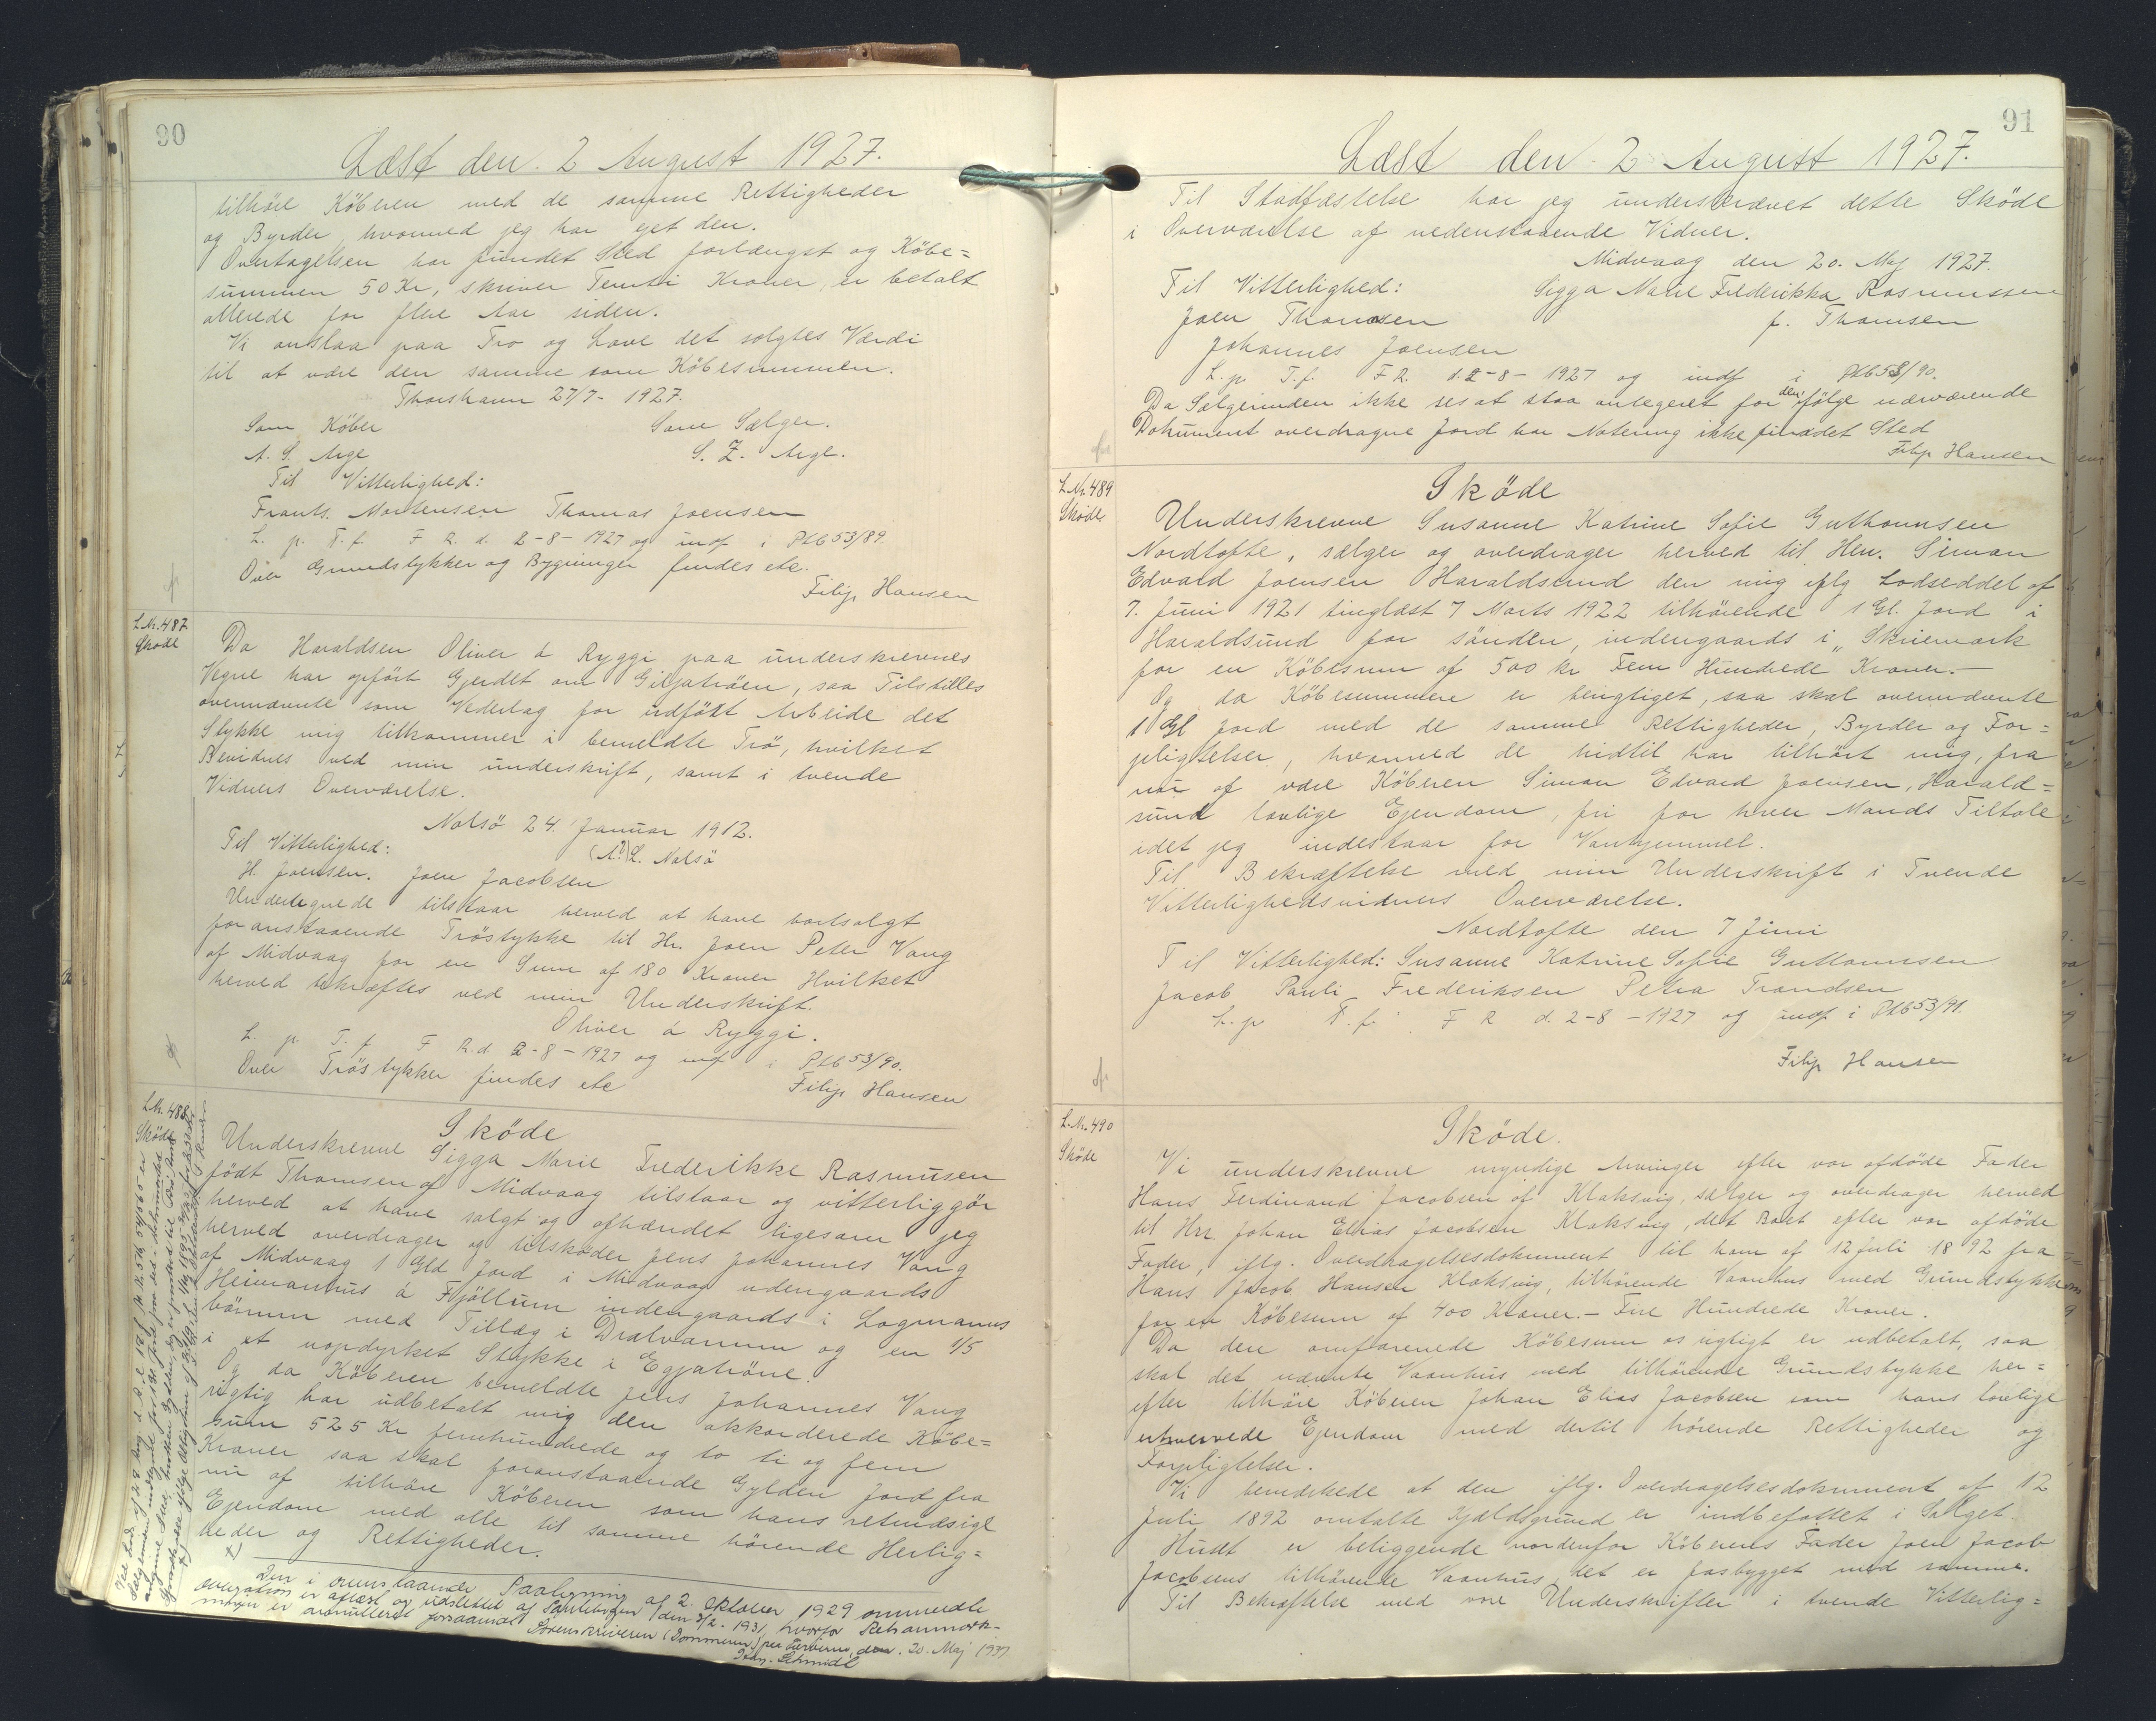 90
Læst den 2 August 1927.
tilhöre Köberen med de samme Rettigheder
og Byrder, hvormed jeg har ejet den.
Overtagelsen har fundet Sted forlængst og Köbe=
summen 50 Kr, skriver Femti Kroner, er betalt
allerede for flere Aar siden.
Vi anslaa paa Tro og Love det solgtes Værdi
til at være den samme som Köbesummen.
Thorshavn 27/7- 1927.
Som Köber Som Sælger.
A. S. Arge S. Z. Arge.
Til Vitterlighed:
Frants. Mortensen Thomas Joensen
L. p. T. f. F R. d. 2-8-1927 og indf i Ptb 53/89.
Over Grundstykker og Bygninger findes etc.
Filip Hansen
L.Nr. 487
Skøde
Da Haraldsen Oliver á Ryggi paa underskrevnes
Vegne har opfört Gjerdet om Giljatröen, saa Tilstilles
ovennævnte som Vederlag for udfört Arbeide det
Stykke mig tilkommer i bemeldte Trö, hvilket
Bevidnes ved min underskrift, samt i tvende
Vidners Overværelse.
Nolsö 24. Januar 1912.
Til Vitterlighed: (A?) L. Nolsö
H. Joensen. Joen Jacobsen
Undertegnede tilstaar herved at have bortsolgt
foranstaaende Tröstykke til Hr. Joen Peter Vang
af Midvaag for en Sum af 180 Kroner Hvilket
herved bekræftes ved min Underskrift.
Oliver á Ryggi.
L. p. T. f. F R. d 2-8-1927 og indf i Ptb 53/90.
Over Tröstykker findes etc
Filip Hansen
L.Nr. 488
Skøde
Sköde
Underskrevne Sigga Marie Frederikke Rasmusen
født Thomsen af Midvaag tilstaar og vitterliggör
herved at have solgt og afhændet ligesom jeg
herved overdrager og tilskøder Jens Johannes Vang
af Midvaag 1 Gld Jord i Midvaag udengaards
Heimanhus á Fjöllum indengaards i Logmanns
börnum med Tillæg i Dralvanum og en 1/5
i et uopdyrket Stykke i Egjatröne.
Og da Köberen bemeldte Jens Johannes Vang
rigtig har udbetalt mig den akkorderede Köbe=
sum 525 Kr femhundrede og to ti og fem
Kroner saa skal foranstaaende Gylden Jord fra
nu af tilhöre Köberen som hans retmæssige
Ejendom med alle til samme hörende Herlig=
heder og Rettigheder.
Den i ovenstaaende Paategning af 2. Oktober 1929 ommeldte
er aflæst og udslettet af Pantebogen den 3/2-1931, hvorfor Retsanmærk-
ningen er annulleret forsaavidt Sorenskriveren (Dommeren) paa Færöerne, den. 20. Maj 1937
Schmidt
91
Læst den 2 August 1927.
Til Stadfæstelse har jeg underskrevet dette Sköde
i Overværelse af nedenstaaende Vidner.
Midvaag den 20. Maj 1927.
Til Vitterlighed: Sigga Marie Frederikka Rasmussen
Joen Thomsen f. Thomsen
Johannes Joensen
L. p. T. f. F R. d. 2-8-1927 og indf i Ptb 53/90.
Da Sælgerinden ikke ses at staa antegnet for den ifölge nærværende
Dokument overdragne Jord har Notering ikke fundet Sted
Filip Hansen
L.Nr. 489
Sköde
Sköde
Underskrevne Susanne Katrine Sofie Guttormsen
Nordtofte, sælger og overdrager herved til Herr. Simon
Edvard Joensen Haraldsund den mig iflg Lodseddel af
7. Juni 1921 tinglæst 7 Marts 1922 tilhörende 1 Gl. Jord i
Haraldsund for sönden, indengaards i „Skriemark
for en Köbesum af 500 kr Fem Hundrede Kroner.-
Og da Köbesummen er berigtiget, saa skal ovennævnte
1 Gl Jord med de samme Rettigheder, Byrder og For=
pligtelser, hvormed de hidtil har tilhört mig, fra
nu af være Köberen Simon Edvard Joensen, Harald=
sund lovlige Ejendom, fri for hver Mands Tiltale
idet jeg indestaar for Vanhjemmel.
Til Bekræftelse med min Underskrift i Tvende
Vitterlighedsvidners Overværelse.
Nordtofte den 7 Juni
Til Vitterlighed: Susanne Katrine Sofie Guttormsen
Jacob Pauli Frederiksen Petra Trondsen
L. p T. f. F R d. 2-8-1927 og indf i Ptb 53/91.
Filip Hansen
L.Nr. 490
Sköde
Sköde.
Vi underskrevne myndige Arvinger efter vor afdöde Fader
Hans Ferdinand Jacobsen af Klaksvig, sælger og overdrager herved
til Hrr. Johan Elias Jacobsen Klaksvig, det Boet efter vor afdöde
Fader, iflg. Overdragelsesdokument til ham af 12 Juli 1892 fra
Hans Jacob Hansen Klaksvig, tilhörende Vaanhus med Grundstykke
for en Köbesum af 400 Kroner.- Fire Hundrede Kroner.
Da den omförmeldte Köbesum os rigtigt er udbetalt, saa
skal det nævnte Vaanhus med tilhörende Grundstykke her=
efter tilhöre Köberen Johan Elias Jacobsen som hans lovlige
erhvervede Ejendom med dertil hörende Rettigheder og
Forpligtelser.
Vi bemærkede at den iflg. Overdragelsesdokument af 12
Juli 1892 omtalte Kjældsgrund er indbefattet i Salget.
Huset er beliggende nordenfor Köberens Fader Joen Jacob
Jacobsens tilhörende Vaanhus, det er fasbygget med samme.
Til Bekræftelse med vore Underskrifter i tvende Vitterlig=